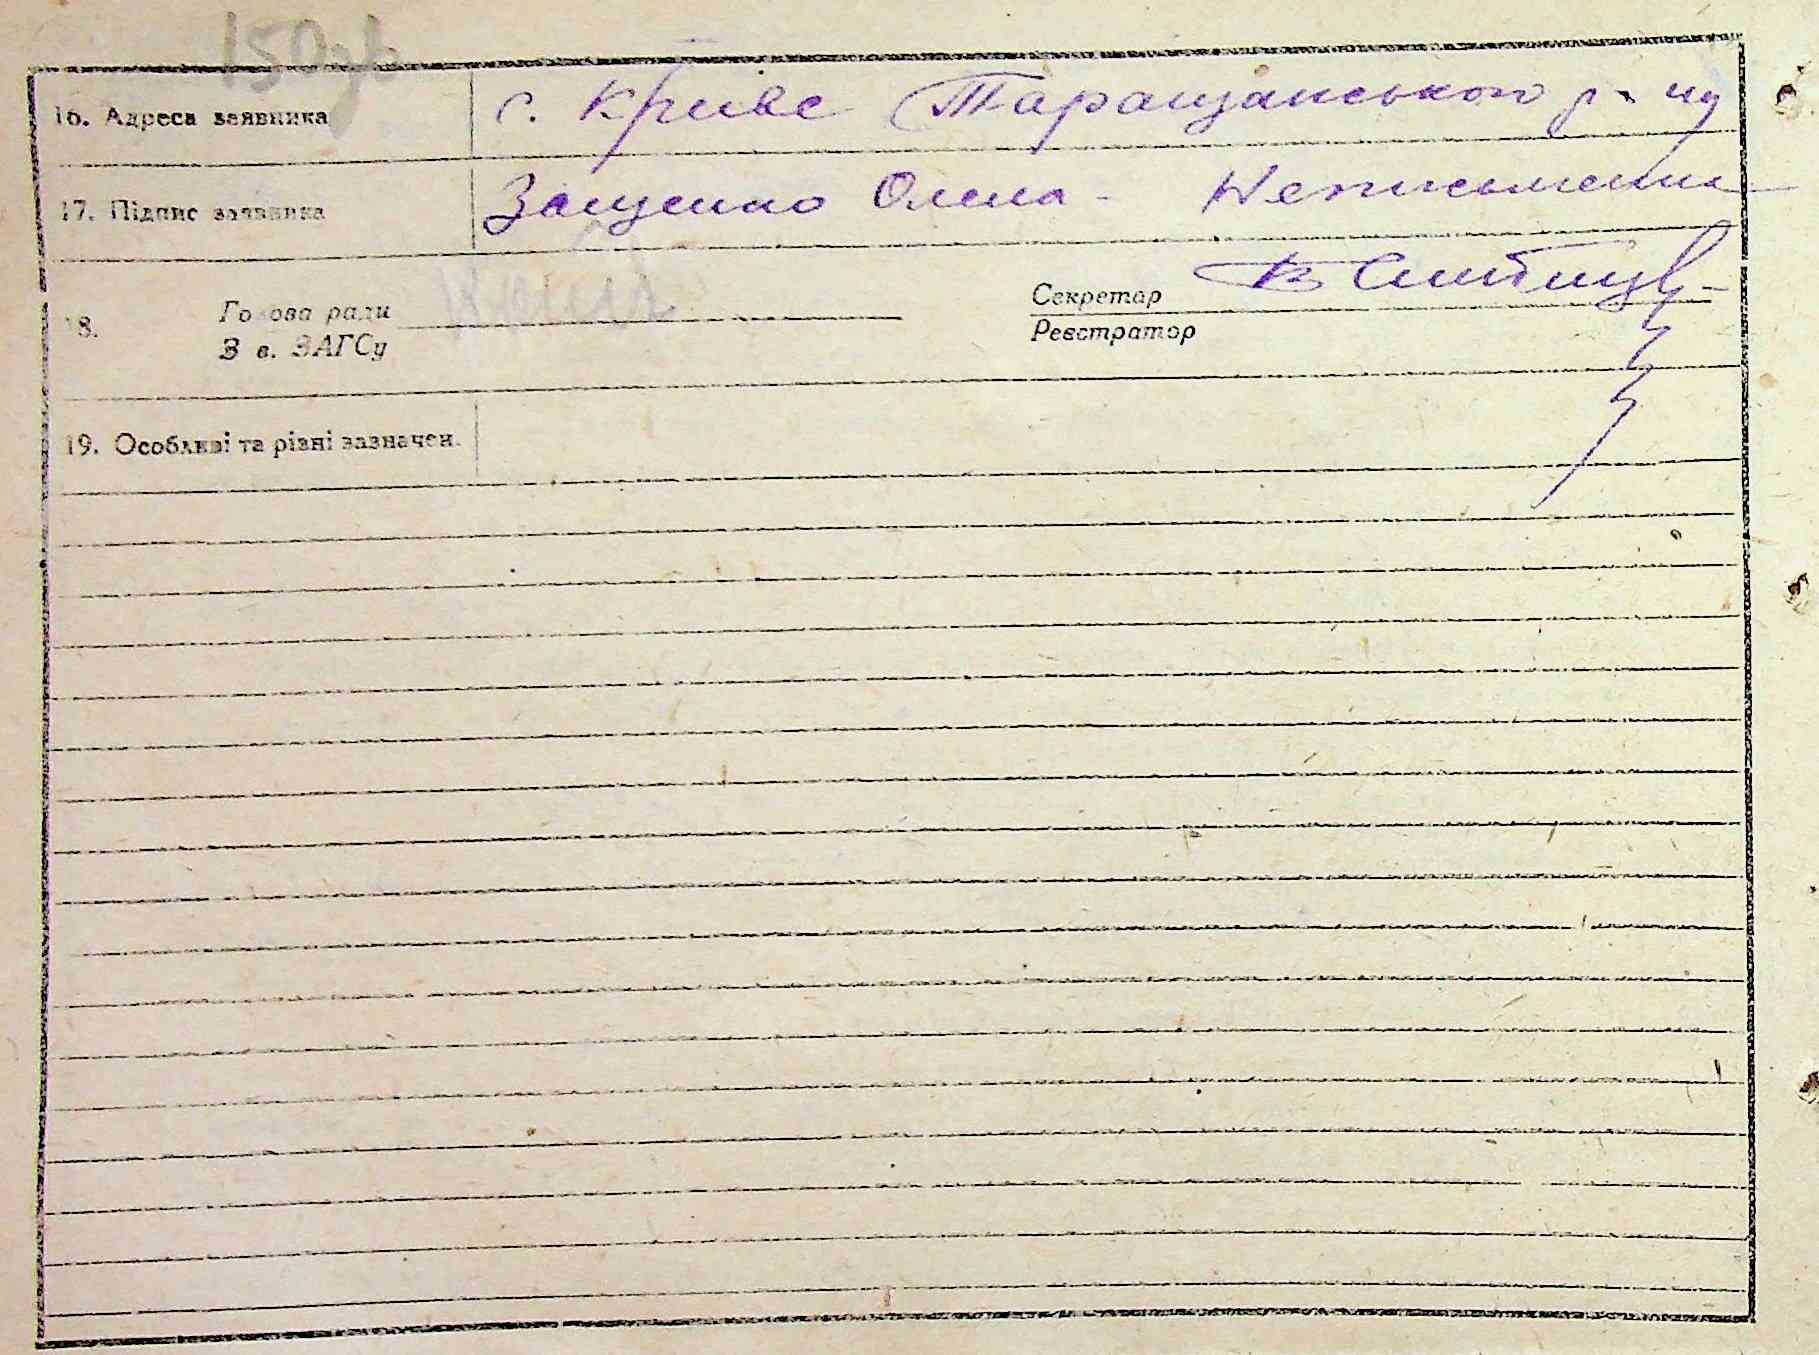 150
16. Адреса заявника с. Криве Таращанського р-ну
17. Підпис заявника Защенко Олена - Неписьменна
18. Голова ради Секретар
Зав. ЗАГСу Реєстратор
19. Особливі та різні зазначен.